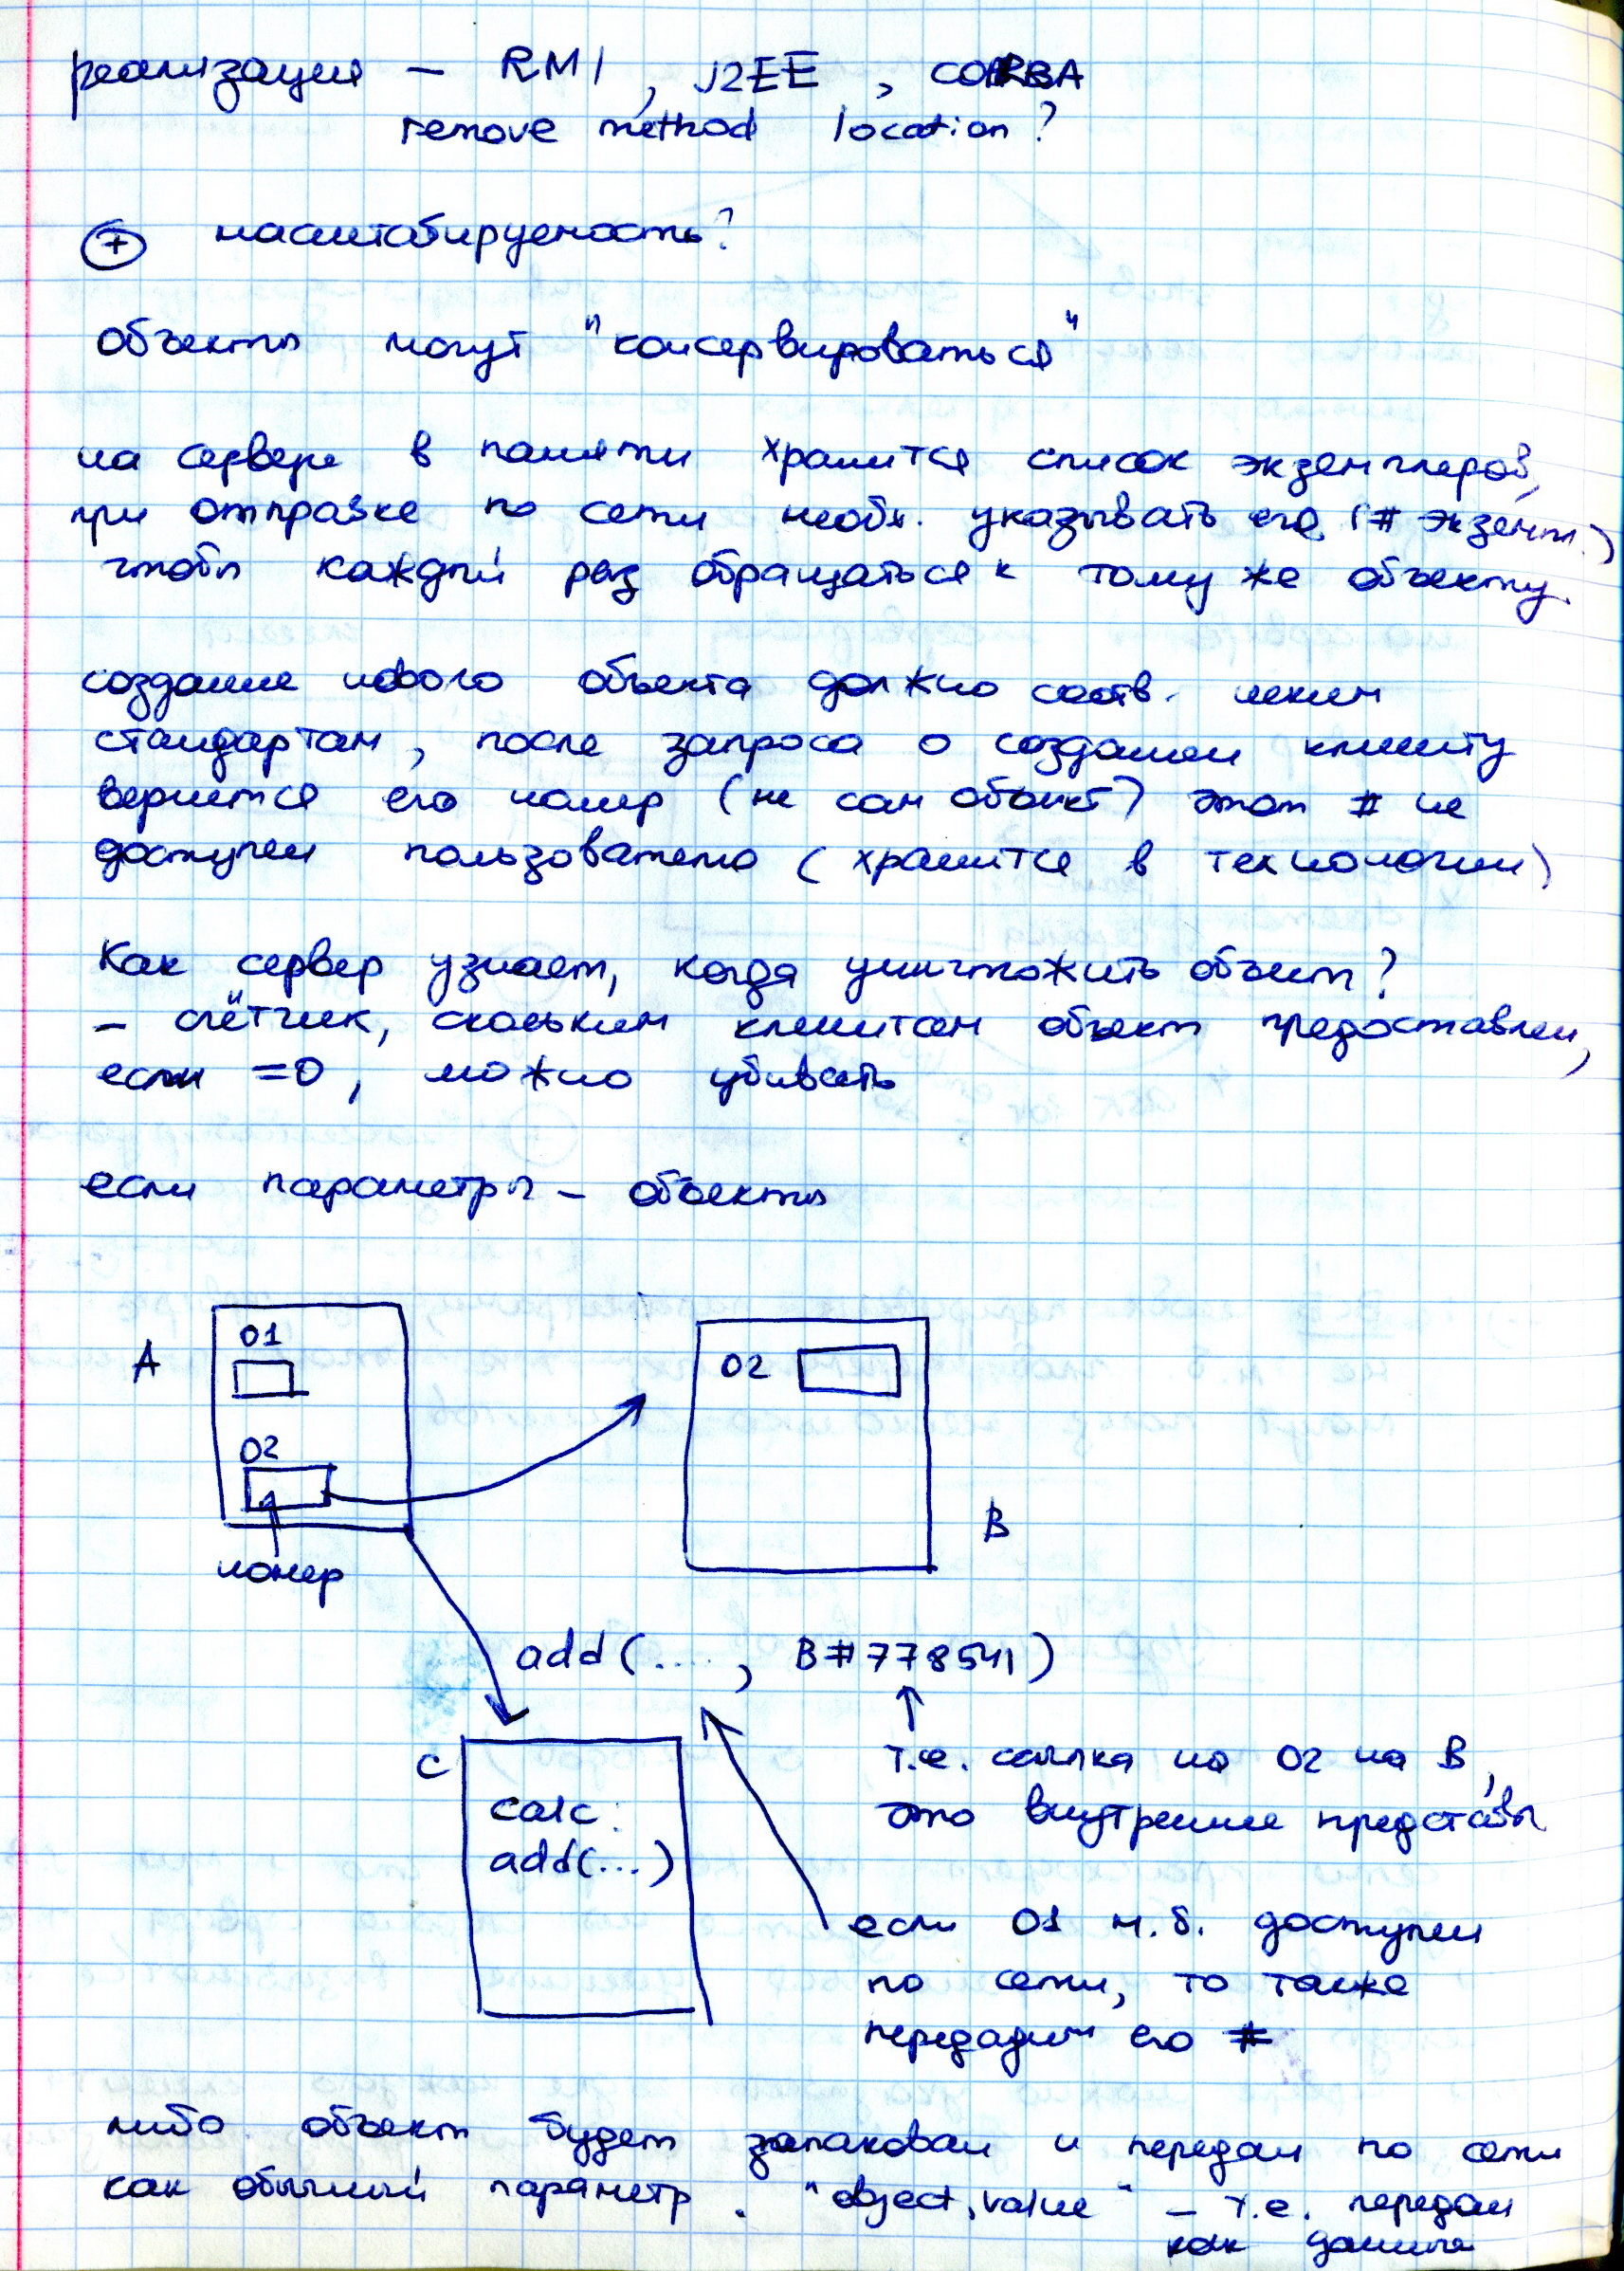 реализация – RMI, J2EE, CORBA
remove method location?
+ масштабируемость?
объекты могут "консервироваться"
на сервере в памяти хранится список экземпляров,
при отправке по сети необх. указывать его (# экземпл.)
чтобы каждый раз обращаться к тому же объекту.
создание нового объекта должно соотв. неким
стандартам, после запроса о создании клиенту
вернётся его номер (не сам объект) этот # не
доступен пользователю (хранится в технологии)
Как сервер узнает, когда уничтожить объект?
– счётчик, скольким клиентам объект предоставлен,
если =0, можно убивать
если параметры – объекты
A
O1
O2
номер
O2
B
add(...., B#778541)
C
calc:
add(...)
т.е. ссылка на O2 на B,
это внутреннее представл
если O1 м.б. доступен
по сети, то также
передадим его #
либо объект будет запакован и передан по сети
как обычный параметр. "object, value" – т.е. передан
как данные